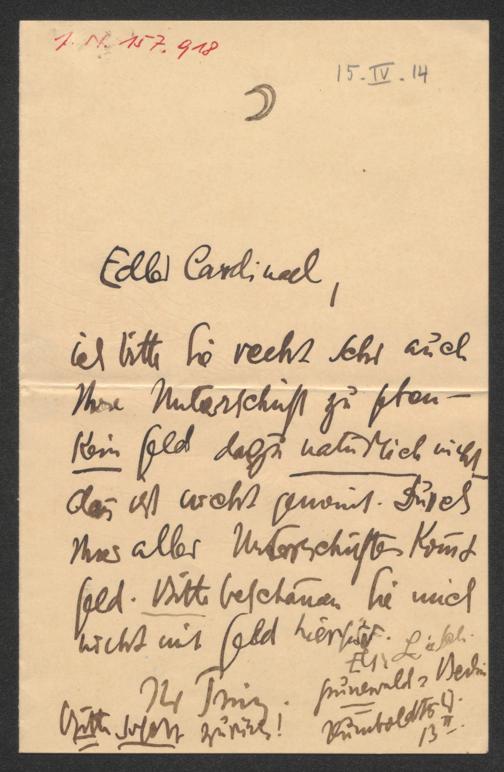 J. N. 157.918
15. IV. 14
Edler Cardinal,
ich bitte Sie recht sehr auch
Ihre Unterschrift zu geben –
Kein Geld dazu natürlich nicht
das ist nicht gemeint. Durch
Ihrer aller Unterschriften kommt
Geld. Bitte beschämen Sie mich
nicht mit Geld hierfür.
Ihr Prinz.
Bitte sofort zurück!
Grunewald = Berlin
Humboldtstr
13 II.